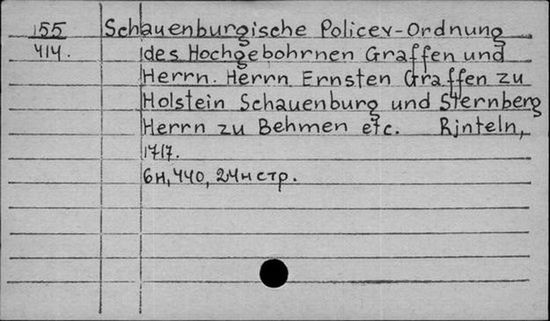 155 Schauenburgische Policev-Ordnung
414. des Hochgebohrnen Graffen und
Herrn. Herrn Ernsten Graffen zu
Holstein Schauenburg und Sternberg
Herrn zu Behmen etc. Rjnteln,
1717.
6н, 440, 24н стр.